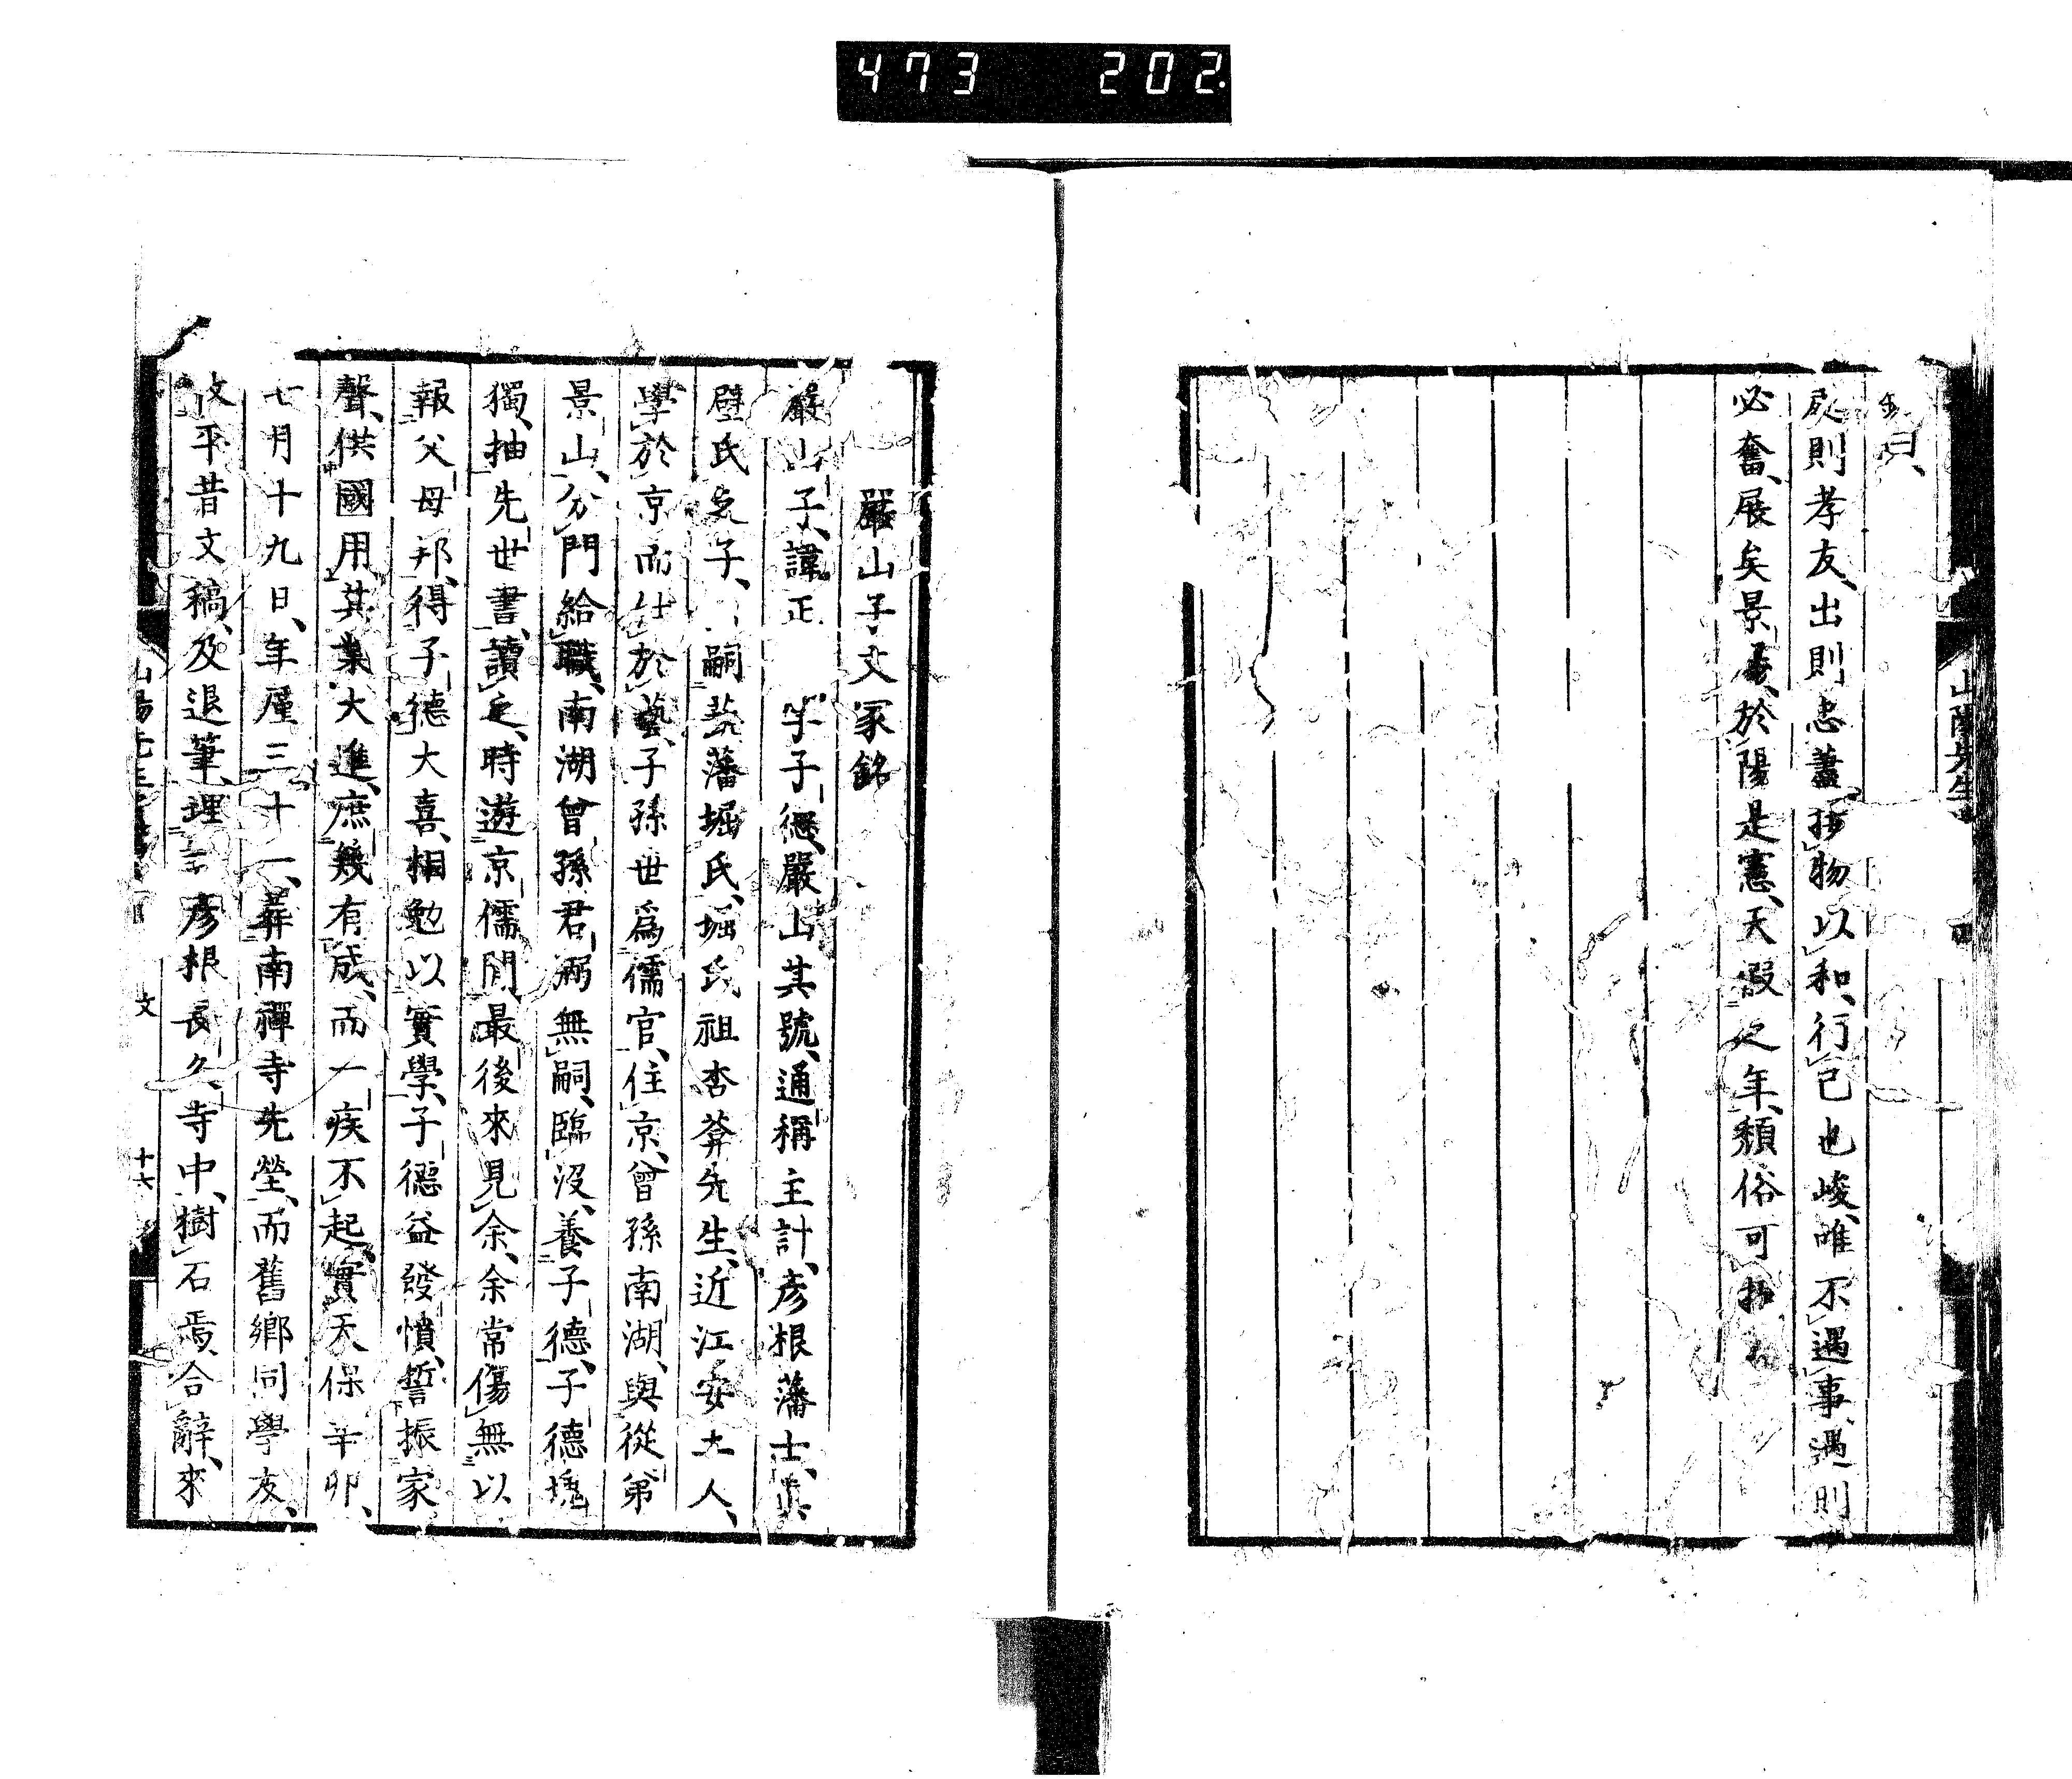 473 202
銘曰、
則孝友、出則忠藎、接物以和、行己也峻、唯不遇事、遇則
必奮、展矣景、於陽是憲、天假之年、頽俗可
山陽先生
嚴山子文冢銘
嚴山子、諱正　字子德、嚴山其號、通稱主計、彥根藩士、眞
壁氏次子、嗣藝藩堀氏、堀氏祖杏菴先生、近江安土人、
學於京而仕於藝、子孫世爲儒官、住京、曾孫南湖、與從弟
景山、分門給職、南湖曾孫君弼無嗣、臨沒、養子德、子德塊
獨、抽先世書、讀之、時遊京儒間、最後來見余、余常傷無以
報父母邦、得子德大喜、相勉以實學、子德益發憤、誓振家
聲、供國用、其業大進、庶幾有成、而一疾不起、實天保辛卯、
七月十九日、年厪三十一、葬南禪寺先塋、而舊鄉同學友、
收平昔文稿、及退筆、埋于彥根長久寺中、樹石焉、合辭、來
文　十六